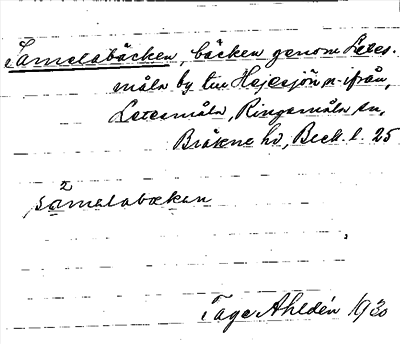 Samelabäcken, bäcken genom Letes-
måla by till Hejesjön n-ifrån,
Letesmåla, Ringamåla sn,
Bräkne hd, Beck. l. 25
samelabækan
Tage Ahldén 1930